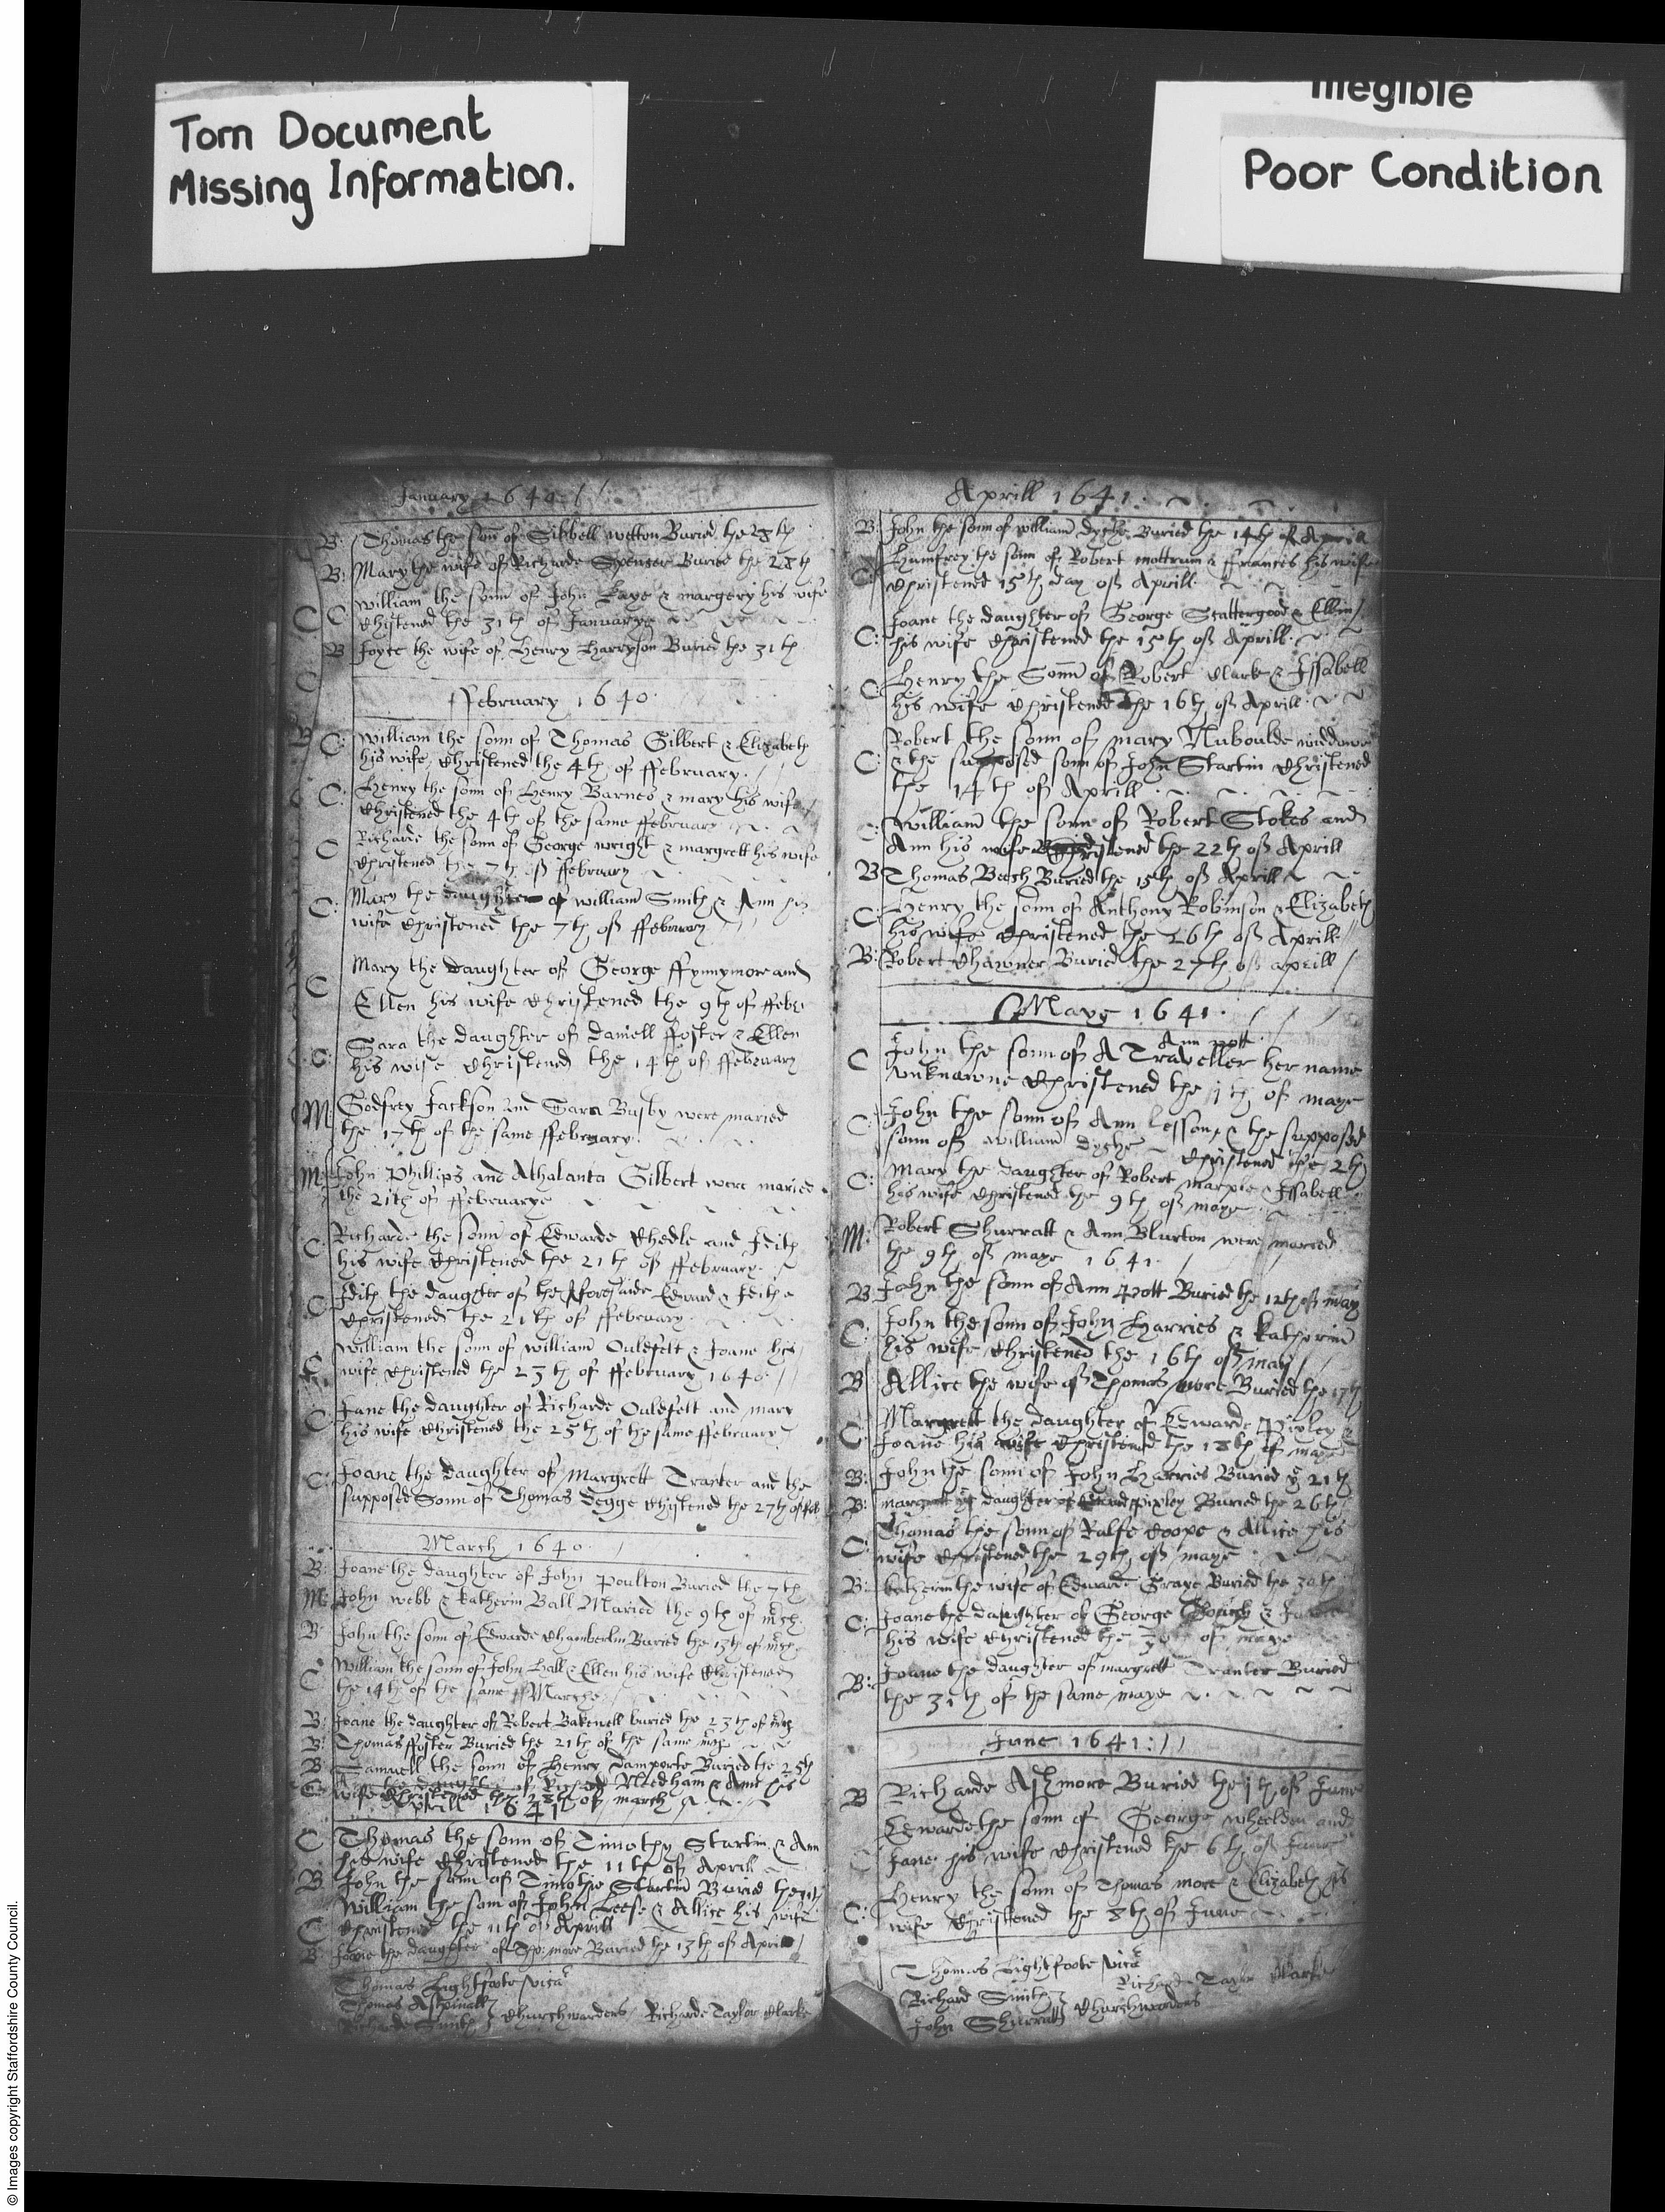 Torn Document
Missing Information.
Illegible
Poor Condition
January 1640 //
B: Thomas the sonn of Sibbell Wetton Buried the 28th
B: Mary the wife of Richarde Spenser Buried the 28th
C: William the sonn of John Kaye & margery his wife
Christened the 31th of Januarye
B Joyce the wife of Henry Harryson Buried the 31th
ffebruary 1640
C: William the sonn of Thomas Gilbert & Elizabeth
his wife Christened the 4th of ffebruary.
C: Henry the sonn of Henry Barnes & mary his wife
Christened the 4th of the same ffebruary
C Richarde the sonn of George wright & margrett his wife
Christened the 7th of ffebruary
C: Mary the daughter of william Smith & Ann his
wife Christened the 7th of ffebruary
C Mary the daughter of George ffynnymore and
Ellen his wife Christened the 9th of ffebr
C: Sara the daughter of Daniell ffoster & Ellen
his wife Christened the 14th of ffebruary
M: Godfrey Jackson and Sara Busby were maried
the 17th of the same ffebruary.
M: John Phillips and Athalanta Gilbert were maried
the 21th of ffebruarye
C: Richarde the sonn of Edwarde Chedle and Jdith
his wife Christened the 21th of ffebruary.
C Jdith the daughter of the Aforesaide Edward & Jdith
Christened the 21th of ffebruary.
C William the sonn of william Ouldfelt & Joane his
wife Christened the 23th of ffebruary 1640
C: Jane the daughter of Richarde Ouldfelt and mary
his wife Christened the 25th of the same ffebruary
C: Joane the daughter of Margrett Tranter and the
supposed Sonn of Thomas Degge Christened the 27th of feb
March 1640
B: Joane the daughter of John Poulton Buried the 7th
M: John webb & Katherin Ball Maried the 9th of mch.
B: John the sonn of Edwarde Chamberlin Buried the 13th of mch
C William the sonn of John Hall & Ellen his wife Christened
the 14th of the same Marche
B: Joane the daughter of Robert Bakewell buried the 23th of mch
B: Thomas ffoster Buried the 21th of the same mch
B Samuell the sonn of Henry Damporte Buried the 25th
C: the daughter of Richard Medham & Ame his
wife Christened the 28th of march
Aprill 1641
C Thomas the sonn of Timothy Startin & Ann
his wife Christened the 11th of Aprill
B John the sonn of Timothe Startin Buried the 11th
C William the sonn of John Leese & Allice his wife
Christened the 11th of Aprill
B: Joane the daughter of Tho: more Buried the 13th of Aprill
Thomas Lightfoote Vicar
Thomas Aspinall
Richarde Smith } Churchwardens Richarde Taylor Clarke
Aprill 1641.
B: John the sonn of william Dyche Buried the 14th of Aprill
C: Humfrey the sonn of Robert mottrum & ffrances his wife
Christened 15th day of Aprill
C: Joane the daughter of George Scattergood & Ellin
his wife Christened the 15th of Aprill.
C: Henry the Sonn of Robert Clarke & Jssabell
his wife Christened the 16th of Aprill
C: Robert the sonn of mary Nuboulde widdowe
& the supposed sonn of John Startin Christened
the 14th of Aprill
C: William the sonn of Robert Stokes and
Ann his wife Christened the 22th of Aprill
B Thomas Beech Buried the 15th of Aprill
C: Henry the sonn of Anthony Robinson & Elizabeth
his wife Christened the 26th of Aprill
B: Robert Chawner Buried the 27th of aprill
Maye 1641.
Ann pott
C John the sonn of A Traveller her name
vnknowne Christened the 1th of maye
C: John the sonn of Ann Lesson, & the supposed
sonn of William Dyche Christened the 2th
C: Mary the daughter of Robert marple & Jssabell
his wife Christened the 9th of maye
M: Robert Shurratt & Ann Blurton were maried
the 9th of maye 1641.
B John the sonn of Ann Pott Buried the 12th of may
C: John the sonn of John Harries & Katherin
his wife Christened the 16th of may
B Allice the wife of Thomas more Buried the 17th
C: Margrett the daughter of Edwarde Pixley &
Joane his wife Christened the 18th of maye
B: John the sonn of John Harries Buried ye 21th
B: margrett ye daughter of Edward Pixley Buried the 26th
C: Thomas the sonn of Ralfe Coope & Allice his
wife Christened the 29th of maye
B: Katherin the wife of Edwarde Graye Buried the 30th
C: Joane the daughter of George &
his wife Christened the 30th of maye
B: Joane the daughter of margrett Tranter Buried
the 31th of the same maye
June 1641: //
B Richarde Ashmore Buried the 1th of June
C Edwarde the sonn of George wheeldon and
Jane his wife Christened the 6th of June
C: Henry the sonn of Thomas more & Elizabeth his
wife Christened the 8th of June
Thomas Lightfoote Vicar
Richard Smith } Richard Taylor Clarke
John Shurratt } Churchwardens
© Images copyright Staffordshire County Council.